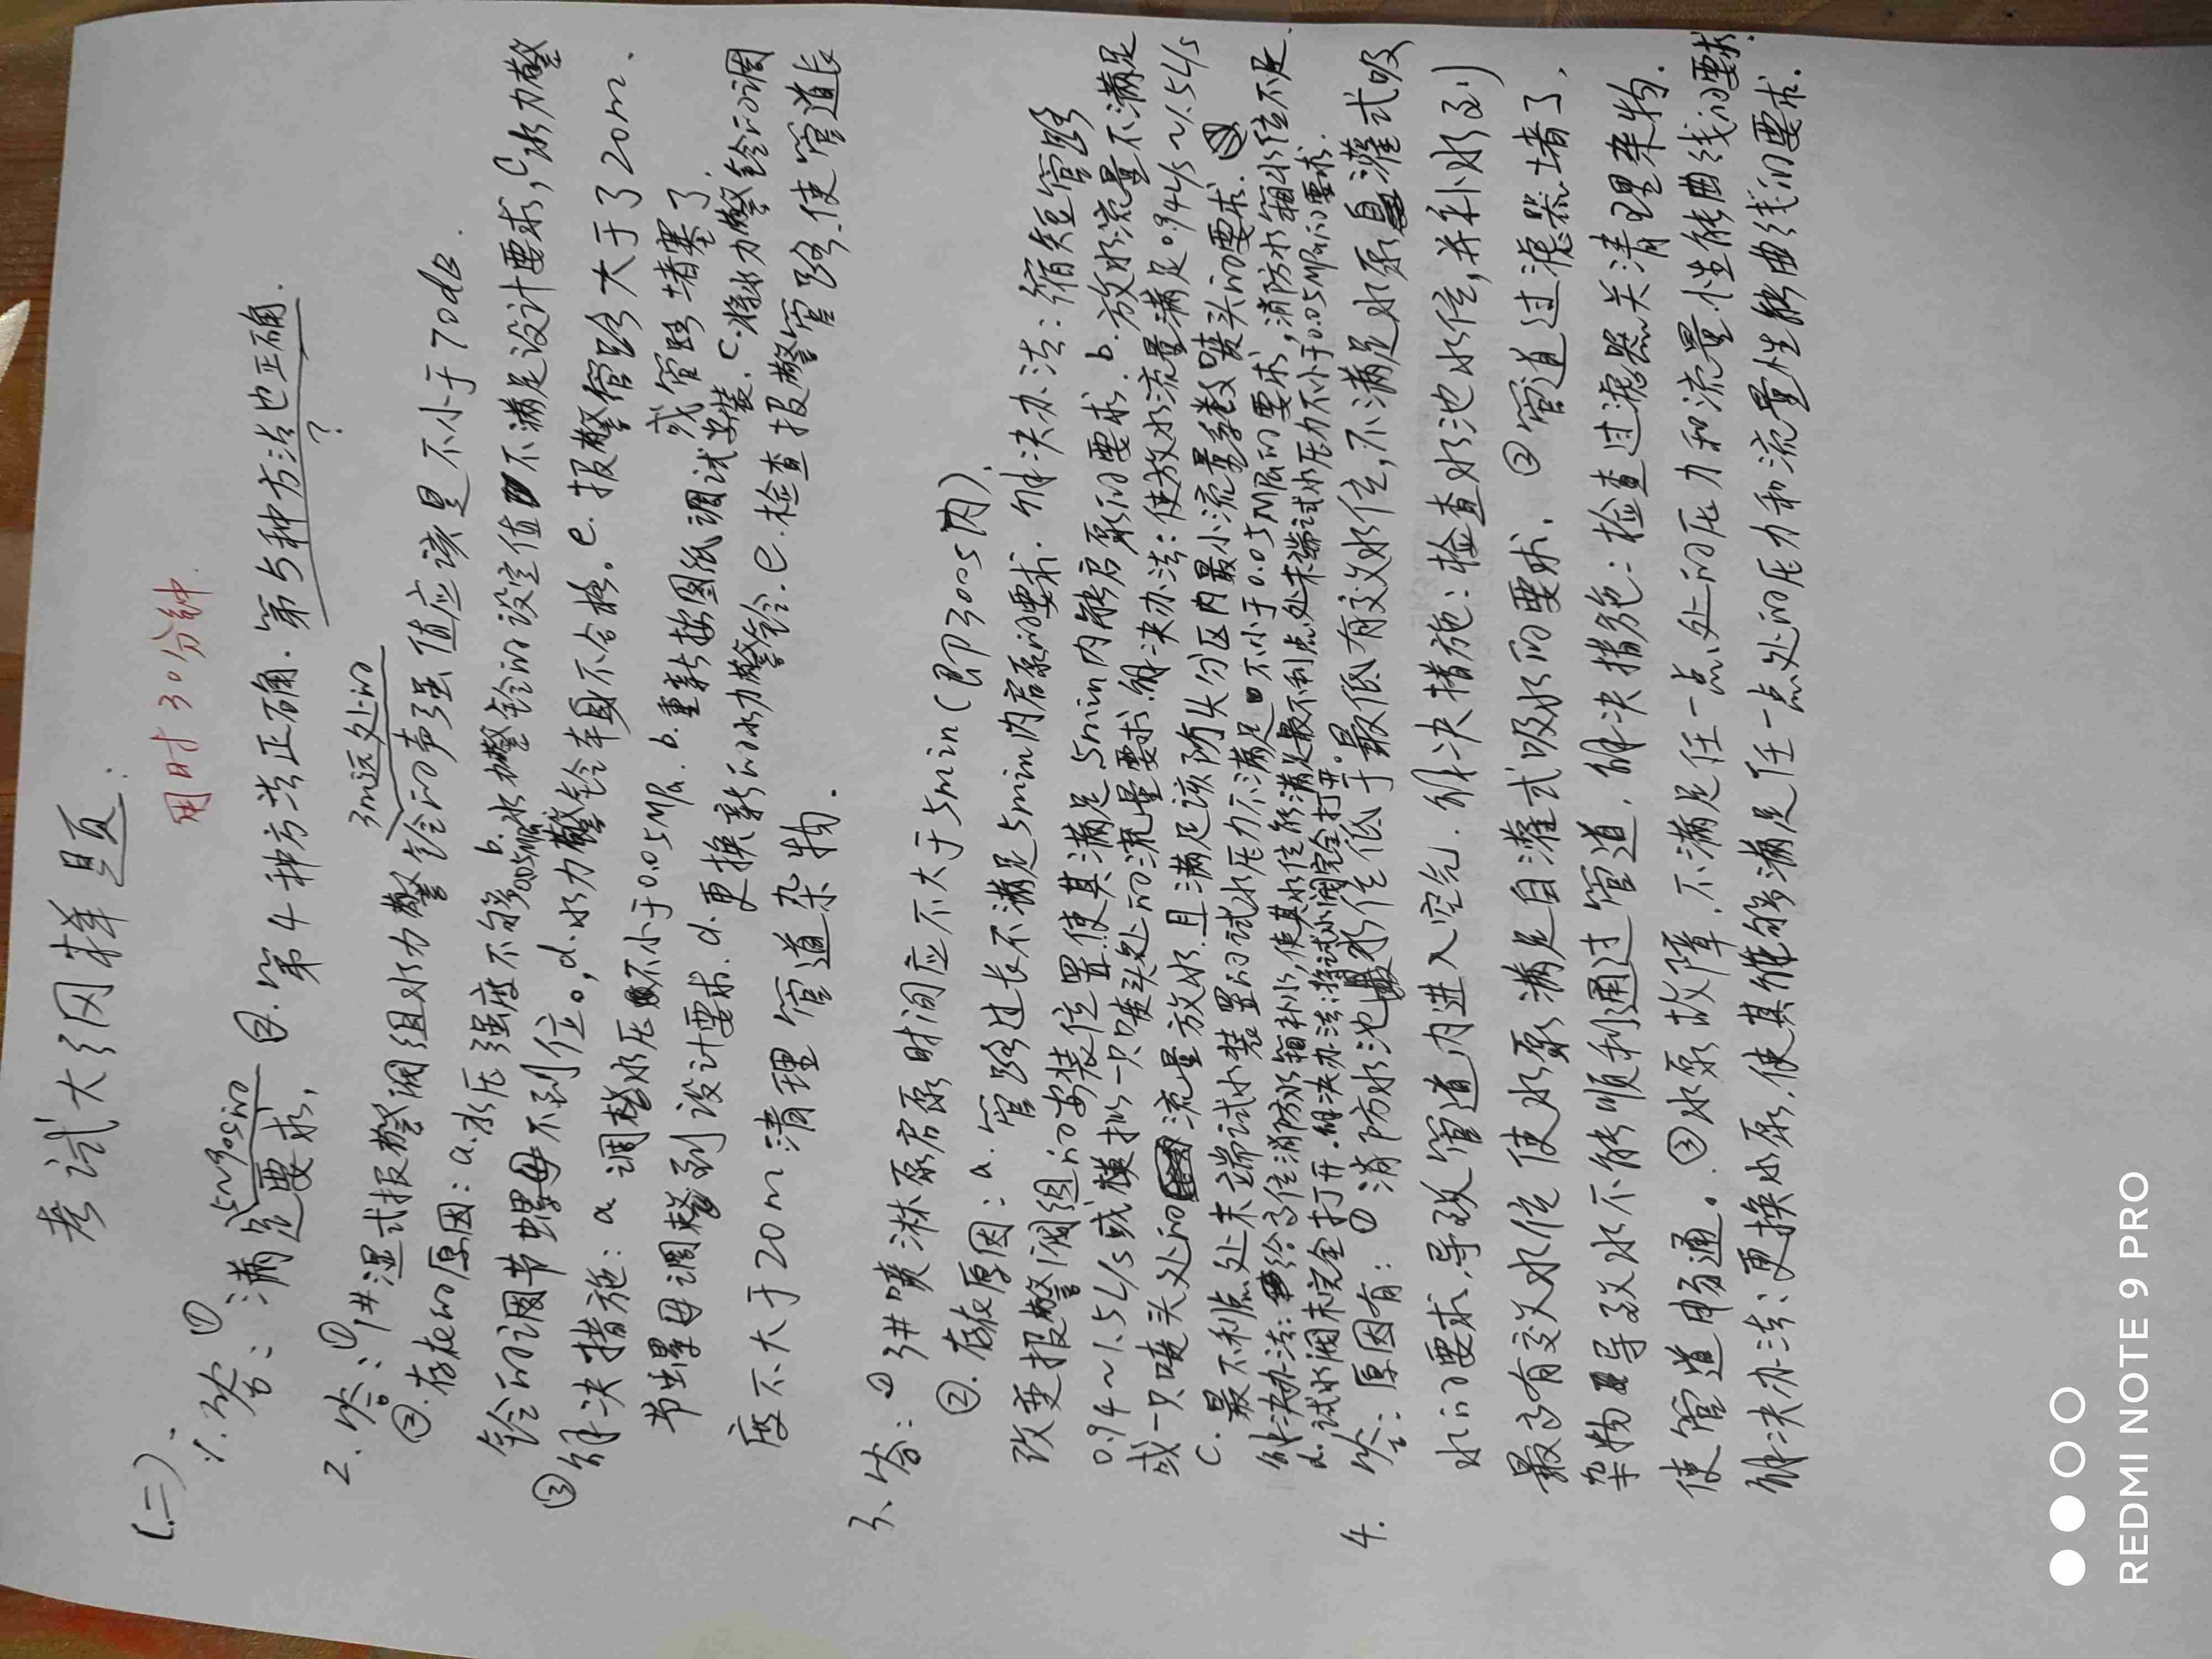 考试大纲样题:
用时30分钟.
(二)
1.答:①满足要求, ②.第4种方法正确.第5种方法也正确.
5~90s的
?
3m远处的
2.答:①1#湿式报警阀组水力警铃的声强值应该是不小于70dB.
②.存在的原因:a.水压强度不够0.05MPa b.水力警铃的设定值不满足设计要求,C水力警
铃的调节螺母不到位。,d.水力警铃本身不合格。e.报警管路大于了20m.
或管路堵塞了.
③解决措施:a调整水压不小于0.05MPa.b.重新按图纸调试安装.C.将水力警铃的调
节螺母调整到设计要求.d.更换新的水力警铃.e.检查报警管路.使管道长
度不大于20m清理管道杂物.
3、答:①3#喷淋泵启泵时间应不大于5min(即300s内).
②.存在原因:a.管路过长不满足5min内启泵的要求.解决办法:缩短管路
改变报警阀组的安装位置使其满足5min内能启泵的要求.b.放水流量不满足
0.94~1.5L/s或模拟一只喷头处的流量要求.解决办法:使放水流量满足0.94L/s~1.5L/s
或一只喷头处的流量放水.且满足该防火分区内最小流量系数喷头的要求.
C.最不利点处末端试水装置的试水压力不满足不小于0.05MPa的要求,消防水箱水位不足.
解决办法:给高位消防水箱补水,使其水位能满足最不利点处末端试水压力不小于0.05MPa的要求.
d.试水阀未完全打开.解决办法:将试水阀完全打开。
4.答:原因有:①消防水池水位低于最低有效水位,不满足水泵自灌式吸
水的要求.导致管道内进入空气.解决措施:检查水池水位,并补水到
最高有效水位使水泵满足自灌式吸水的要求.②管道过滤器堵了,
杂物导致水不能顺利通过管道.解决措施:检查过滤器并清理杂物.
使管道畅通。③水泵故障.不满足任一点处的压力和流量性能曲线的要求.
解决办法:更换水泵.使其能够满足任一点处的压力和流量性能曲线的要求.
REDMI NOTE 9 PRO